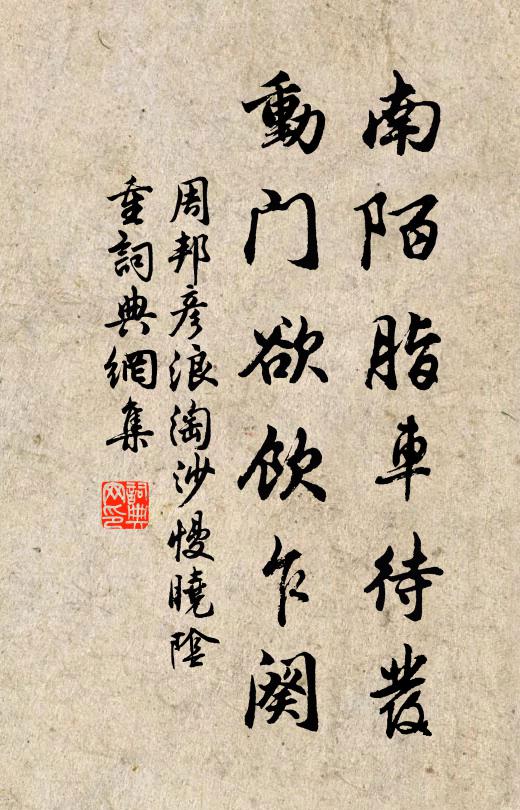 南陌脂車待發
動門欲飲乍闋
周邦彦浪淘沙慢曉陰
重詞典網集
詞典网印